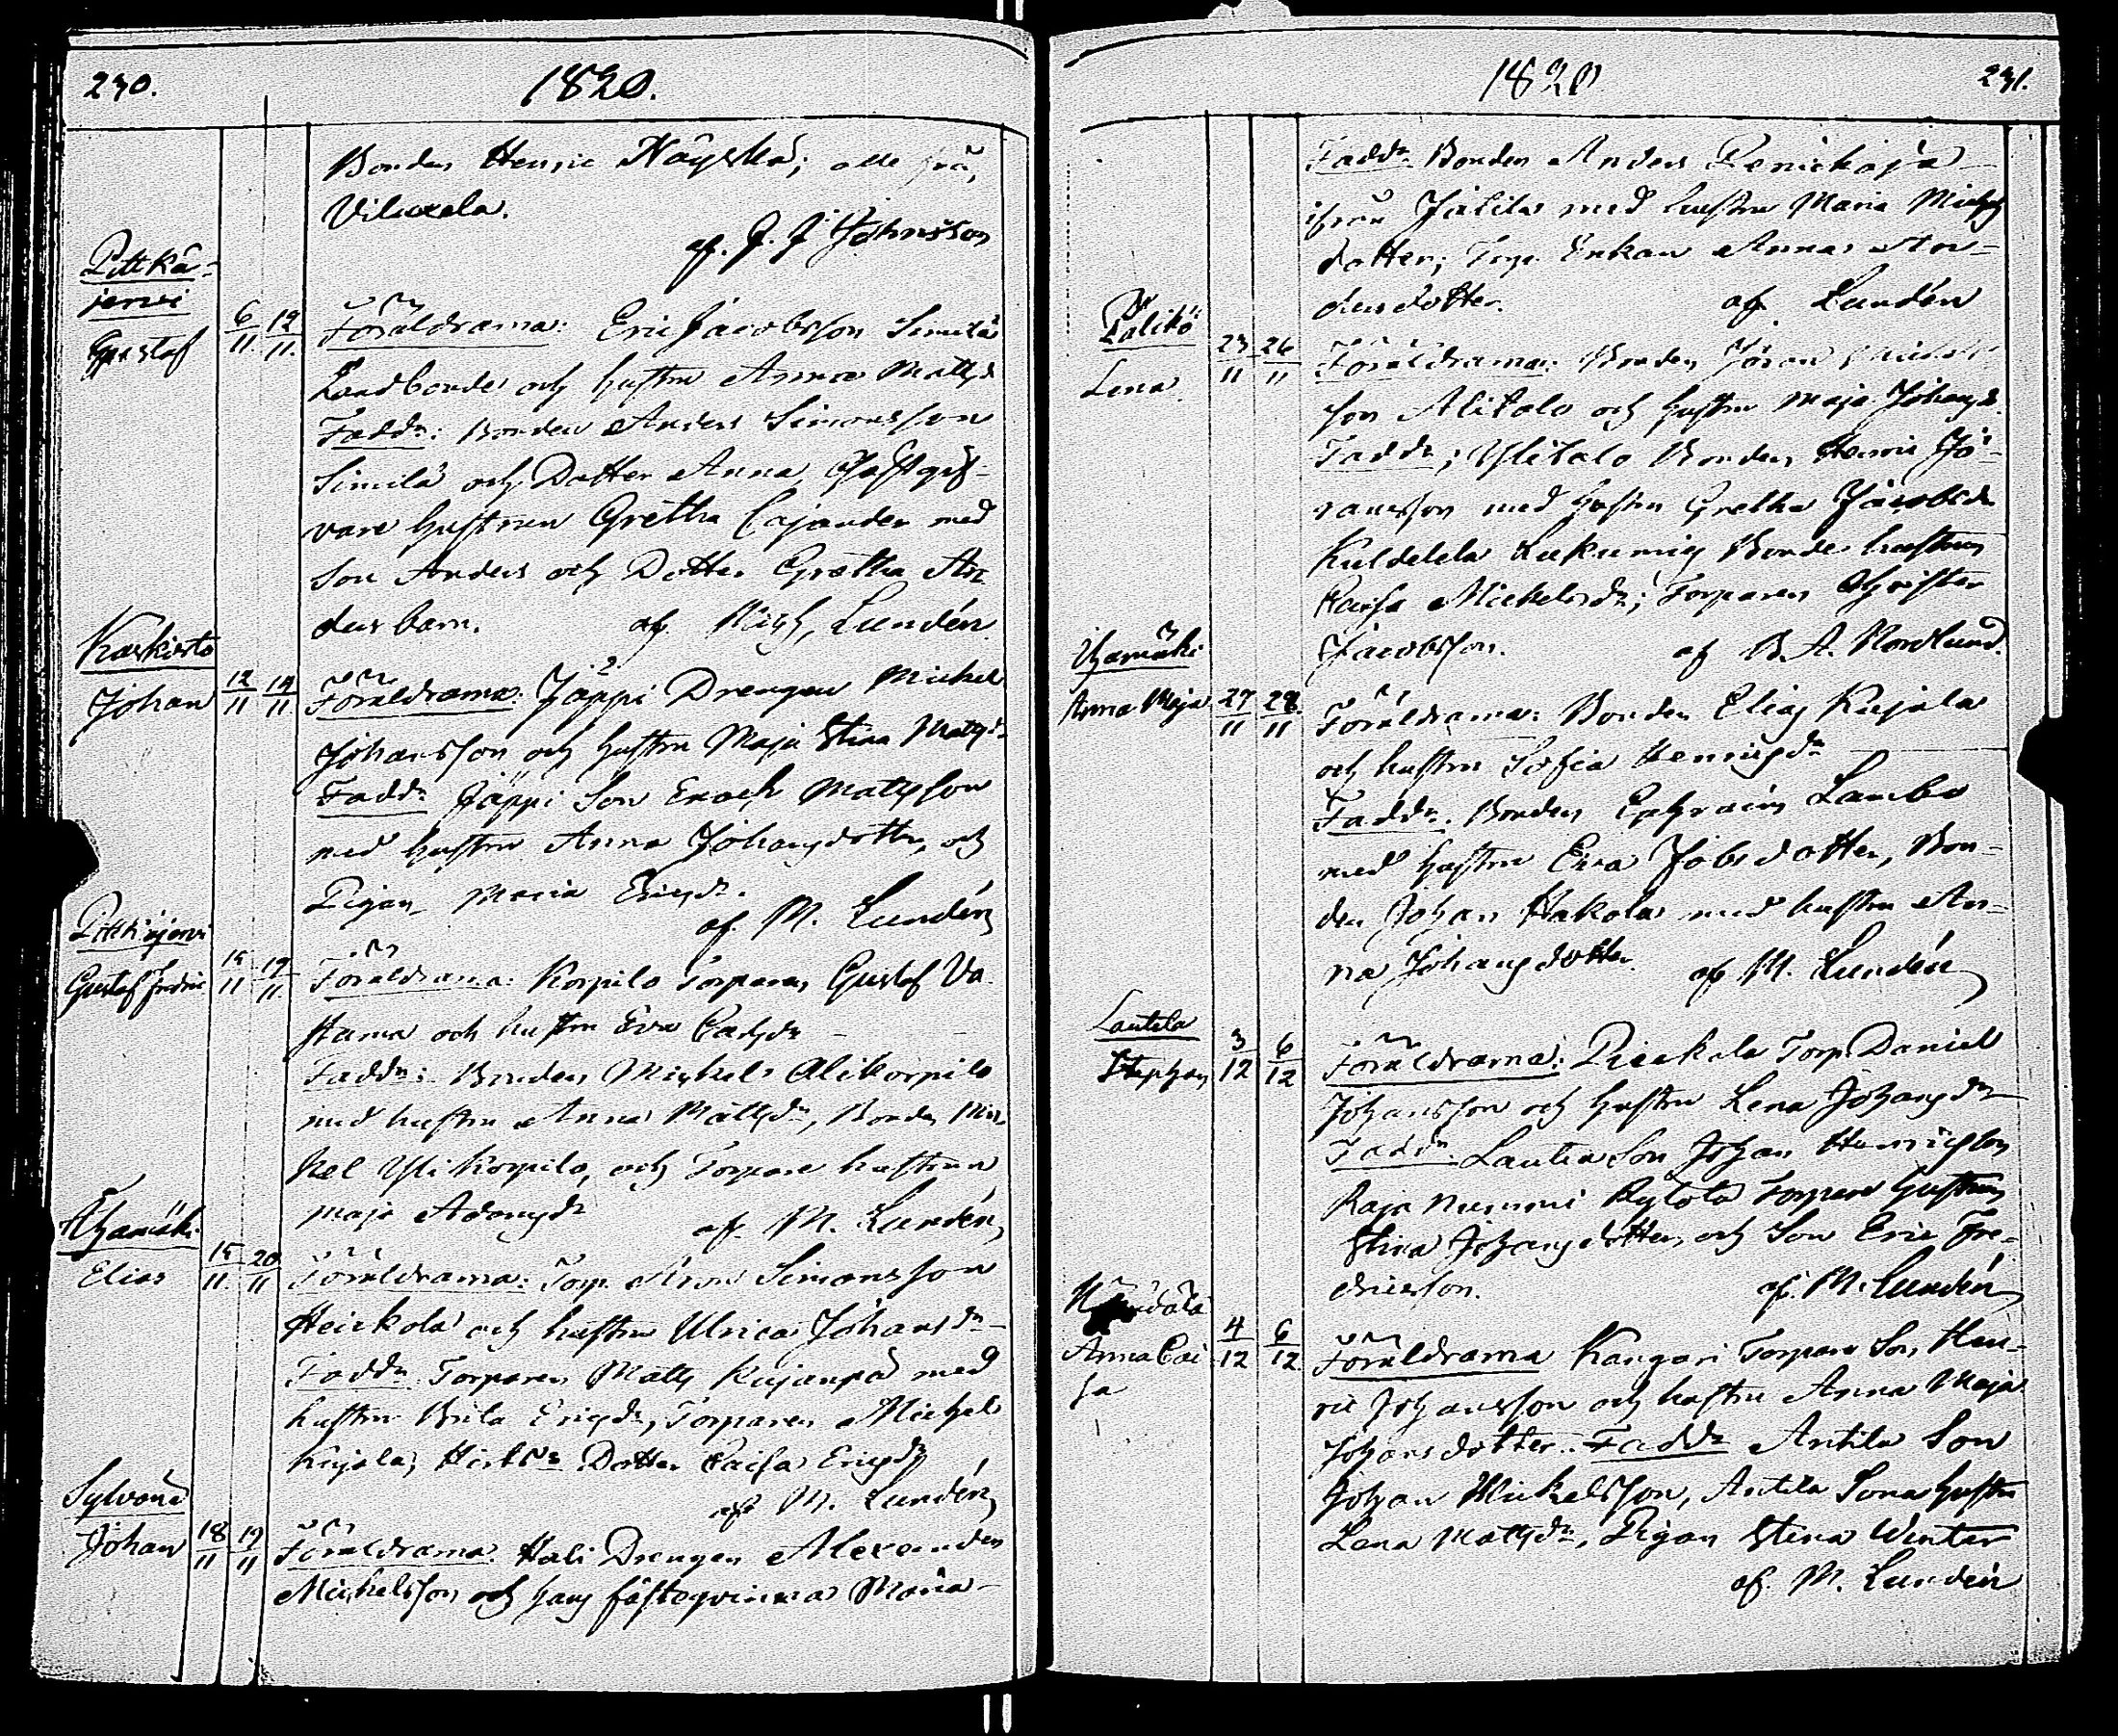 230.
1820.
Bonden Henric Käyskä; alle frå,
Viluxela.
af. J. J. Johnsson
Pittkä-
jerwi
Gustaf
6/11. 12/11.
Föräldrarna: Eric Jacobsson Similä
Landbonde och hustru Anna Mattsd
Faddr: Bonden Anders Simonsson
Similä och Dotter Anna, Gästgif-
vare hustrun Gretha Cajander med
Son Anders och Dotter Gretha An-
dersbarn. af Mich, Lundén
Karkisto
Johan
12/11 14/11
Föräldrarna: Jäppi Drengen Michel
Johansson och hustru Maja Stina Mattsd
Faddr Jäppi Son Enoch Mattsson
med hustru Anna Johansdotter, och
Pigan Maria Ericsdr.
af. M. Lundén
Pittkäjerwi
Gustaf Fredric
15/11 19/11
Föräldrarna: Korpilo Torparen Gustaf Va
stama och hustru Eva Carlsdr
Faddr: Bonden Michel Alikorpilo
med hustru Anna Mattsdr, Bonden Mic-
kel Ylikorpilo, och Torpare hustrun
Maja Adamsdr af. M. Lundén
Yjamäki
Elias
15/11. 20/11
Föräldrarna: Torp. Aron Simonsson
Heickola och hustru Ulrica Johansdr
Faddr Torparen Matts Kujanpä med
hustru Brita Ericsdr, Torparen Michel
Kujala, Dotter Caisa Ericsdr
af M. Lundén
Sylvänä
Johan
18/11 19/11
Föräldrarna: Hali Drengen Alexander
Michelsson och hans fästeqvinna Maria
1820
231.
Faddr Bonden Anders Penickoja
ifrån Jalila med hustru Maria Michels
dotter; Torp. Enkan Anna An-
dersdotter. af Lundén
Palikö
Lena
23/11 26/11
Föräldrarna: Bonden Jöran Michels
son Alitalo och hustru Maja Johansd.
Faddr; Ylitalo Bonden Henric Jö-
ransson med hustru Gretha Jacobsdr
Bonde hustrun
Caisa Mickelsdr; Torparen Christer
Jacobsson. af B. A. Nordlund.
Yjamäki
Anna Maja
27/11 28/11
Föräldrarna: Bonden Elias Kujala
och hustru Sofia Henricsdr
Faddr. Bonden Ephraim Lambo
med hustru Eva Jobsdotter, Bon-
den Johan Hakola med hustru An-
na Johansdotter. af M. Lundén
Lautela
Stephan
3/12 6/12
Föräldrarna: Pieckola Torp. Daniel
Johansson och hustru Lena Johansdr
Faddr. Lautela Son Johan Henricsson
Raja nummi Rytölä Torpare hustrun
Stina Johansdotter, och Son Eric Fre-
dricsson. af. M. Lundén
Anna Cai
sa
4/12 6/12
Föräldrarna Kangari Torpare Son, Hen-
ric Johansson och hustru Anna Maja
Johansdotter. Faddr Antila Son
Johan Mickelsson, Antila Sona hustru
Lena Mattsdr, Pigan Stina Winter
af. M. Lundén